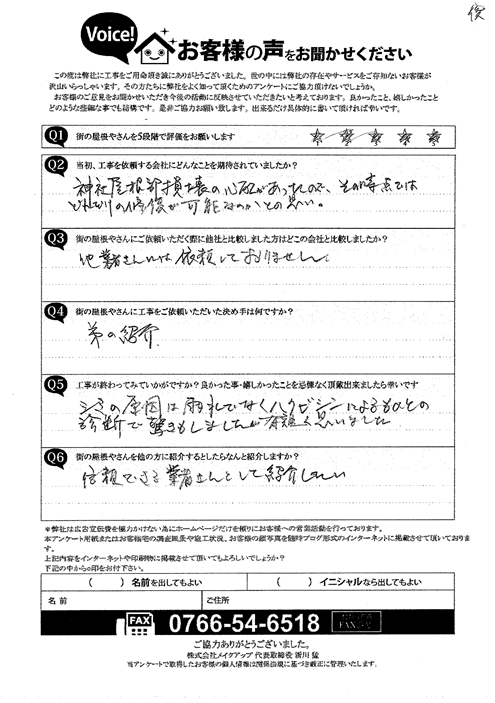 後
Voice!
お客様の声をお聞かせください
この度は弊社に工事をご用命頂き誠にありがとうございました。世の中には弊社の存在やサービスをご存知ないお客様が
沢山いらっしゃいます。その方たちに弊社をよく知って頂くためのアンケートにご協力頂けないでしょうか。
お客様のご意見をお聞かせいただき今後の活動に反映させていただきたいと考えております。良かったこと、嬉しかったこと
どのような些細な事でも結構です。是非ご協力お願い致します。出来るだけ具体的に書いて頂ければ幸いです。
Q1 街の屋根やさんを5段階で評価をお願いします
Q2 当初、工事を依頼する会社にどんなことを期待されていましたか?
神社屋根部損壊の心配があったので、その時点では
どれだけの修復が可能なのかとの思い。
Q3 街の屋根やさんにご依頼いただく際に他社と比較しました方はどこの会社と比較しましたか?
他業者さんには依頼しておりません
Q4 街の屋根やさんに工事をご依頼いただいた決め手は何ですか?
弟の紹介
Q5 工事が終わってみていかがですか?良かった事・嬉しかったことを忌憚なく頂戴出来ましたら幸いです
シミの原因は雨もれでなくハクビシンによるものとの
診断で驚きもしましたが有難く思いました
Q6 街の屋根やさんを他の方に紹介するとしたらなんと紹介しますか?
信頼できる業者さんとして紹介したい
※弊社は広告宣伝費を極力かけない為にホームページだけを頼りにお客様への営業活動を行っております。
本アンケート用紙またはお客様宅での調査風景や施工状況、お客様の顔写真を随時ブログ形式のインターネットに掲載させて頂いております。
上記内容をインターネットや印刷物に掲載させて頂いてもよろしいでしょうか?
下記の中から○印をお付け下さい。
( ) 名前を出してもよい ( ) イニシャルなら出してもよい
名前 ご住所
FAX 0766-54-6518
ご協力ありがとうございました。
株式会社メイクアップ 代表取締役 新川 猛
当アンケートで取得したお客様の個人情報は関係法規に基づき厳正に管理いたします。